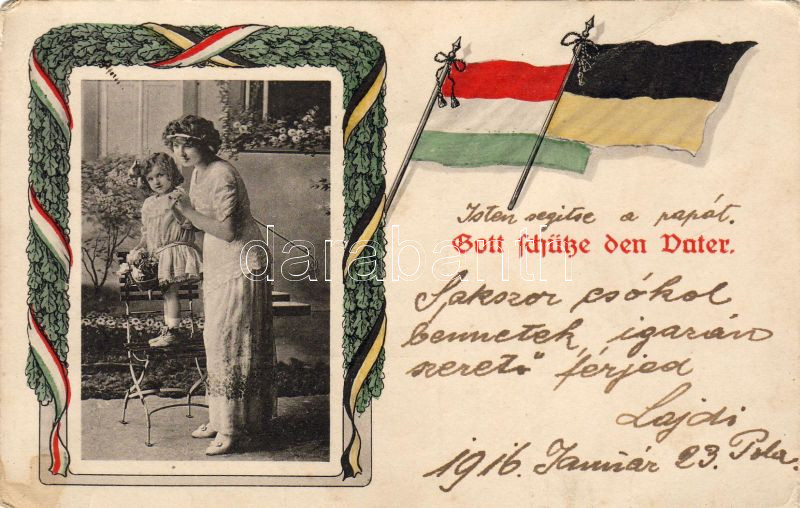 Isten segitse a papát.
Gott schütze den Vater.
Sokszor csókol
bennetek, igazán
szerető férjed
Lajdi
1916. Január 23. Pola.
darabanth